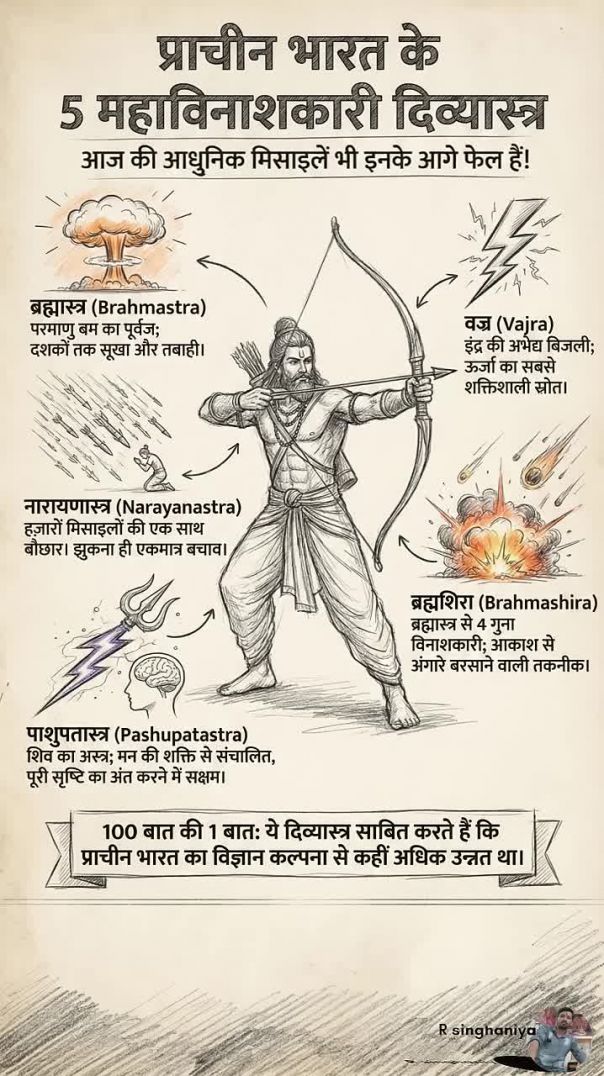 प्राचीन भारत के
5 महाविनाशकारी दिव्यास्त्र
आज की आधुनिक मिसाइलें भी इनके आगे फेल हैं!
ब्रह्मास्त्र (Brahmastra)
परमाणु बम का पूर्वज;
दशकों तक सूखा और तबाही।
वज्र (Vajra)
इंद्र की अभेद्य बिजली;
ऊर्जा का सबसे
शक्तिशाली स्रोत।
नारायणास्त्र (Narayanastra)
हज़ारों मिसाइलों की एक साथ
बौछार। झुकना ही एकमात्र बचाव।
ब्रह्मशिरा (Brahmashira)
ब्रह्मास्त्र से 4 गुना
विनाशकारी; आकाश से
अंगारे बरसाने वाली तकनीक।
पाशुपतास्त्र (Pashupatastra)
शिव का अस्त्र; मन की शक्ति से संचालित,
पूरी सृष्टि का अंत करने में सक्षम।
100 बात की 1 बात: ये दिव्यास्त्र साबित करते हैं कि
प्राचीन भारत का विज्ञान कल्पना से कहीं अधिक उन्नत था।
R singhaniya